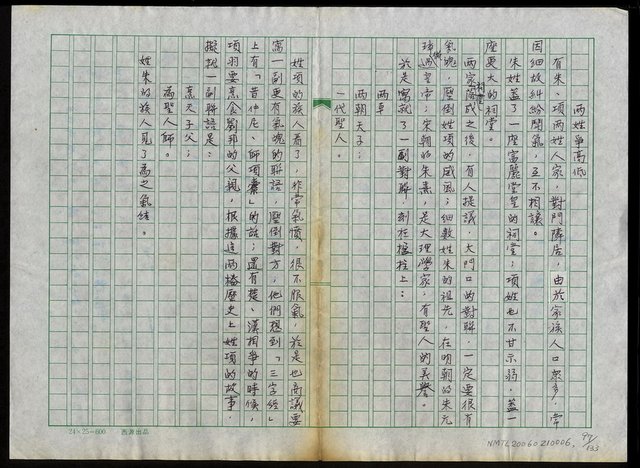 兩姓爭高低
有朱、項兩姓人家，對門隣居，由於家族人口衆多，常
因細故糾紛鬧氣，互不相讓。
朱姓蓋了一座富麗堂皇的祠堂；項姓也不甘示弱，蓋一
座更大的祠堂。
兩家祠堂落成之後，有人提議，大門口的對聯，一定要很有
氣魄，壓倒姓項的威風；細數姓朱的祖先，在明朝的朱元
璋做過皇帝；宋朝的朱熹，是大理學家，有聖人的美譽。
於是寫就了一副對聯，刻在楹柱上：
兩朝天子；
一代聖人。
姓項的族人看了，非常氣憤，很不服氣，於是也商議要
寫一副更有氣魄的聯語，壓倒對方，他們想到「三字經」
上有「昔仲尼、師項橐」的話；還有楚、漢相爭的時候，
項羽要烹食劉邦的父親，根據這兩樁歷史上姓項的故事，
擬就一副聯語是：
烹天子父；
為聖人師。
姓朱的族人見了為之氣結。
24×25=600 西源出品
NMTL20060210006
97/133